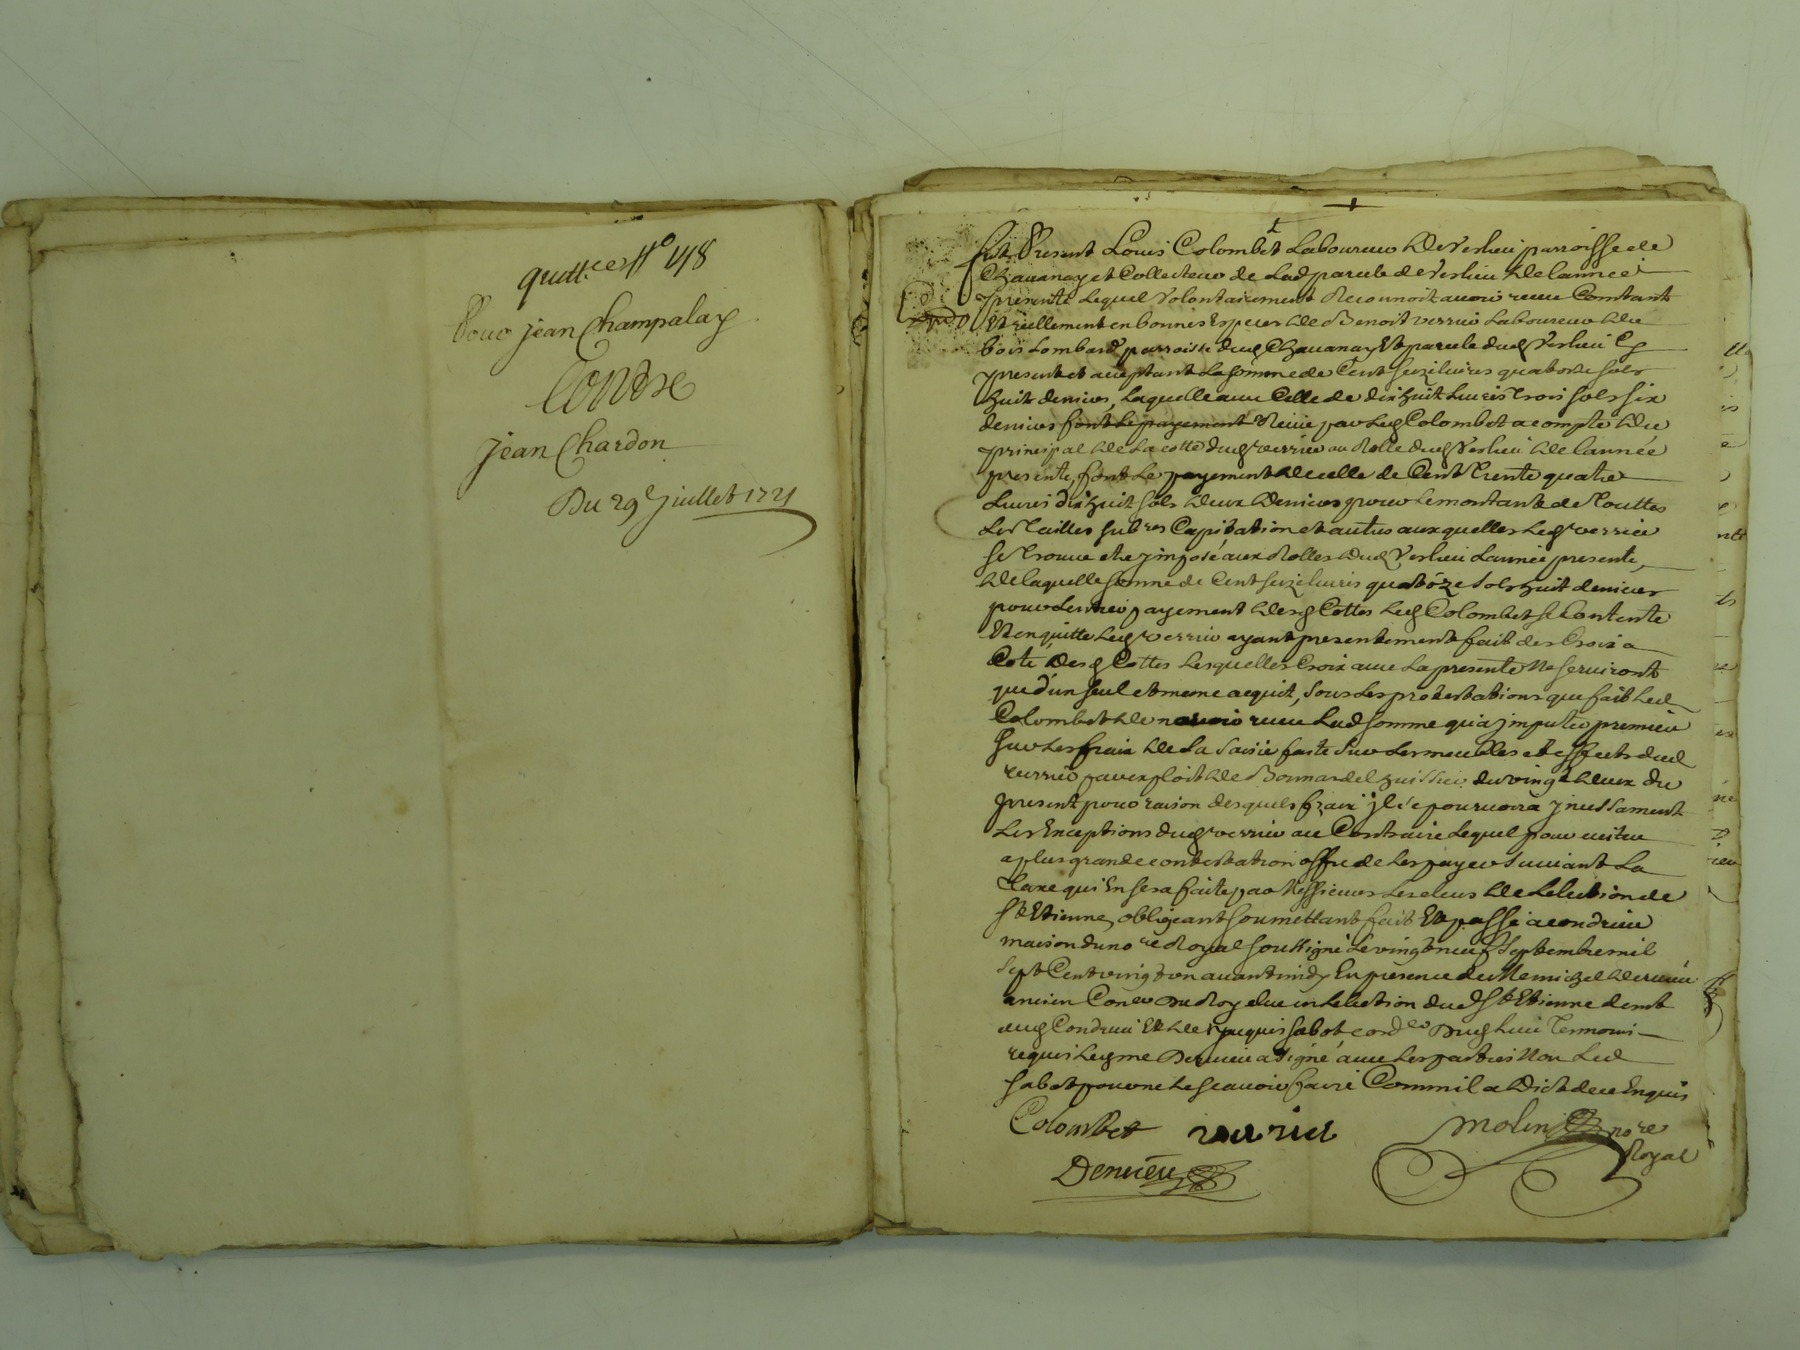 quitt.ce
Pour jean Champalay
Contre
jean Chardon
Du 29e Juillet 1721
fut Present Louis Colombet Laboureur de Verlieu parroisse de
Chauanay et Collecteur de lad parcele de Verlieu de lannee
presente Lequel Volontairement Reconnoit auoir receu Comtant
Et reellement en bonnes Especes de Benoit verrier Laboureur du
bois Lombard parroisse dud Chauanay Et parcele dud Verlieu Cy
present et aceptant La somme de Cent seize liures quatorze sols
huit deniers, Laquelle auec Celle de dix huit Liures Trois sols six
deniers font le payement Receue par led Colombet a compte du
principal de La cotte dud verrier au Rolle dud Verlieu de lannée
presente, font Le payement de celle de Cent Trente quatre
Liures dix huit sols deux deniers pour Le montant de Touttes
Les Tailles Capitation et autres auxquelles Led verrier
se Trouue etre jmposé aux Rolles dud Verlieu Lannée presente,
de laquelle somme de Cent seize liures quatorze sols huit deniers
pour Lentier payement desd Cottes Led Colombet se Contente
Et en quitte Led verrier ayant presentement fait des Croix a
Coté desd Cottes Lesquelles Croix auec La presente Ne seruiront
que d'un seul et meme acquit, sous Les protestations que fait Led
Colombet de nauoir receu Lad somme qu'a jmputer premier
sur Les fraix de La saisie faite sur Les meubles et effects dud
verrier par exploit de huissier du vingt deux du
present pour raison desquels fraix jl se pouruoira
Les Exceptions dud verrier au Contraire Lequel pour euiter
a plus grande contestation offre de Les payer suiuant La
Taxe qui En sera faite par Messieurs Les eleus de Lelection de
St Etienne, obligeant soumettant fait Et passé a condrieu
maison du nore Royal soussigné Le vingt neuf Septembre mil
Sept Cent vingt un auant midy En presence de Me michel
ancien Coner du Roy elu en Lelection dud St Etienne demt
aud Condrieu Et de jacques sabot cordr dud Lieu Temoins
requis Led me a signé auec Les parties Non Led
sabot pour ne Le scauoir faire Comm'il a dict de ce Enquis
Colombet verrier Molin nore
Royal